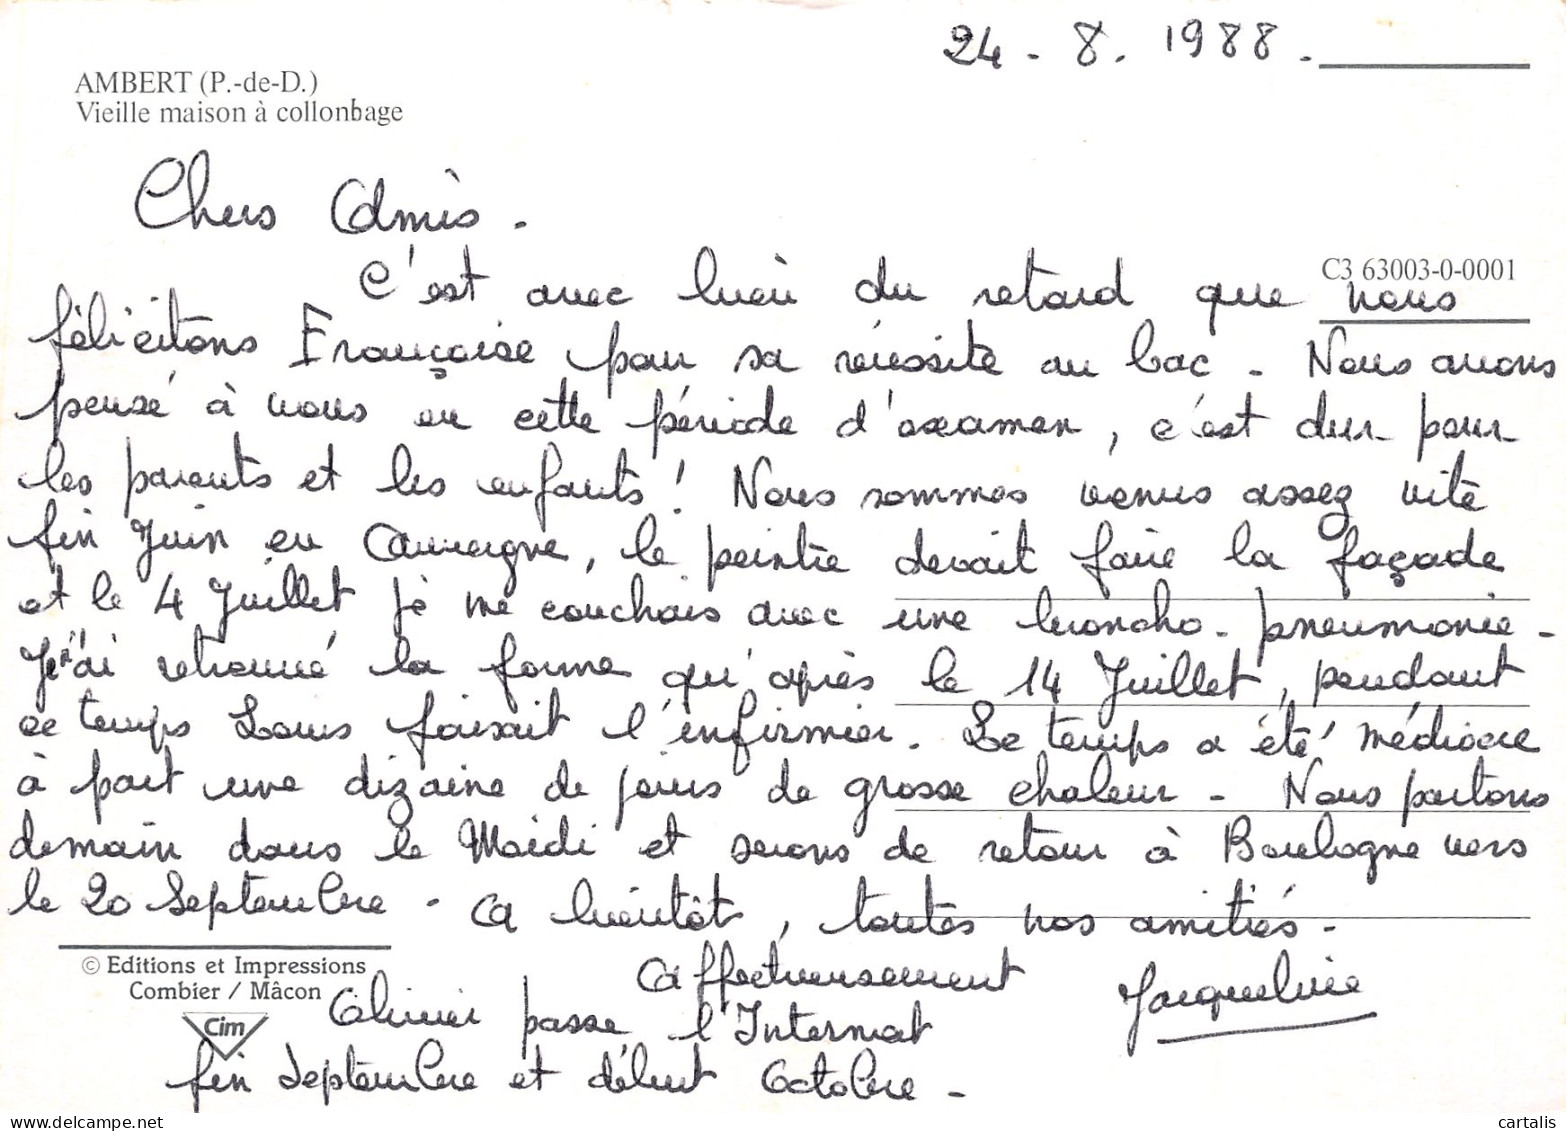 24 - 8. 1988.
AMBERT (P.-de-D.)
Vieille maison à collonbage
Chers Amis.
C3 63003-0-0001
C'est avec bien du retard que nous
félicitons Françoise pour sa réussite au bac - Nous avons
pensé à vous en cette période d'examen, c'est dur pour
les parents et les enfants ! Nous sommes venus assez vite
fin Juin en Auvergne, le peintre devait faire la façade
et le 4 Juillet je me couchais avec une broncho-pneumonie -
Je n'ai retrouvé la forme qu'après le 14 Juillet, pendant
ce temps Louis faisait l'infirmier. Le temps a été médiocre
à part une dizaine de jours de grosse chaleur - Nous partons
demain dans le Midi et serons de retour à Boulogne vers
le 20 Septembre - A bientôt, toutes nos amitiés -
Affectueusement Jacqueline
© Editions et Impressions
Combier / Mâcon
Cim
Olivier passe l'Internat
fin Septembre et début Octobre -
cartalis
www.delcampe.net